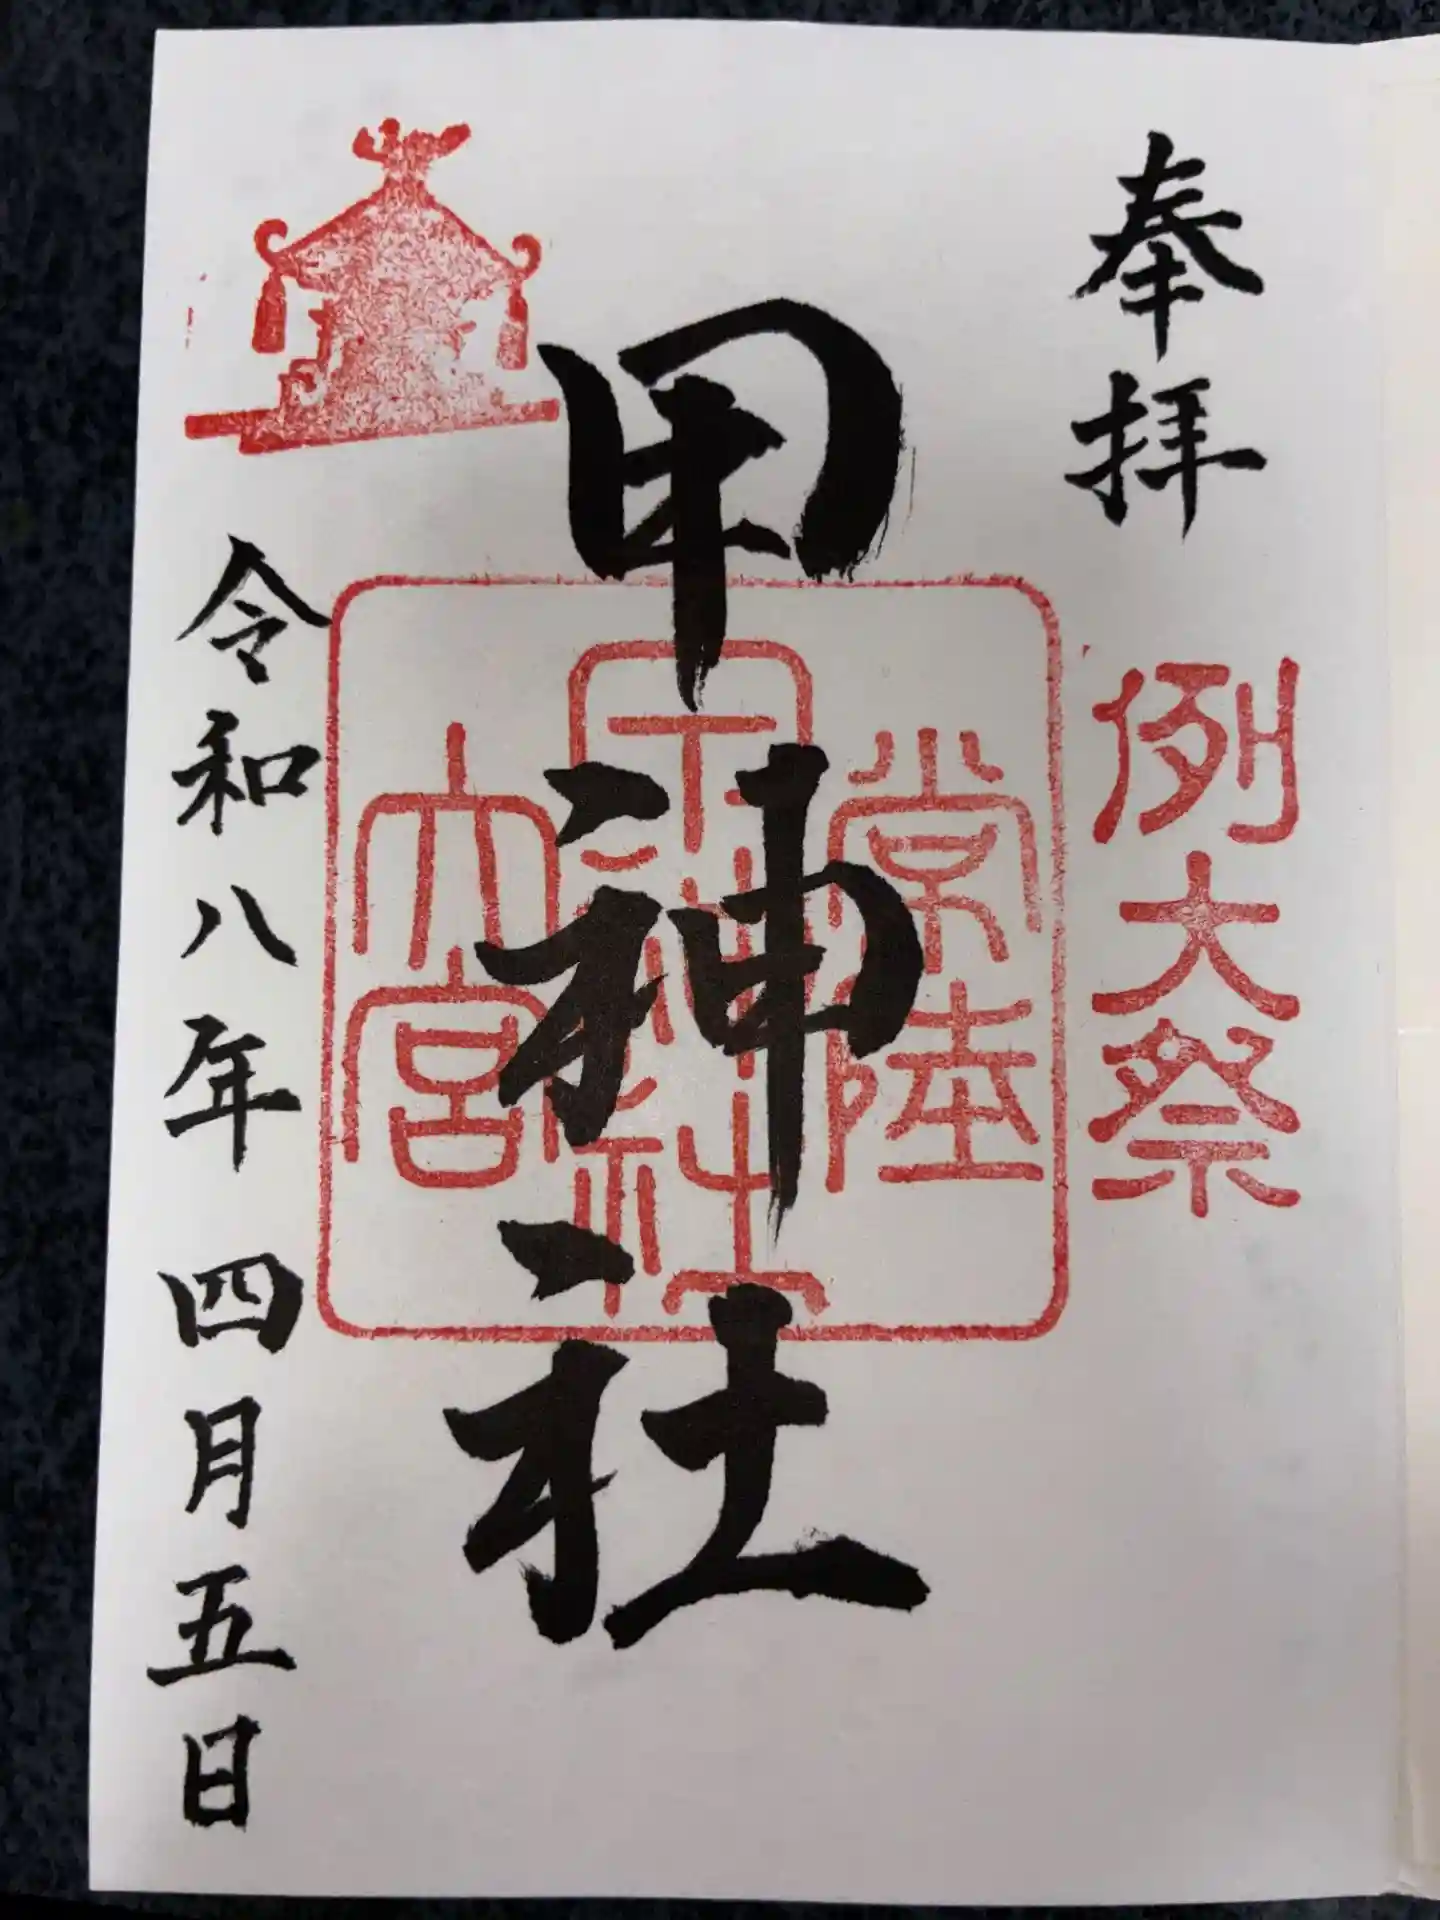 奉拝
例大祭
常陸
甲神社
大宮
甲神社
令和八年四月五日